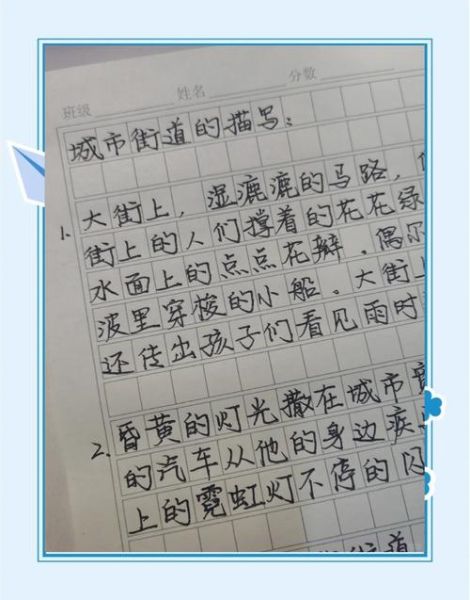 班级 姓名 分数
城市街道的描写：
1. 大街上，湿漉漉的马路，
街上的人们撑着的花花绿
水面上的点点花瓣．偶尔
波里穿梭的小船．大街上
还传出孩子们看见雨时
2. 昏黄的灯光撒在城市
的汽车从他的身边疾
上的霓虹灯不停的闪
街道